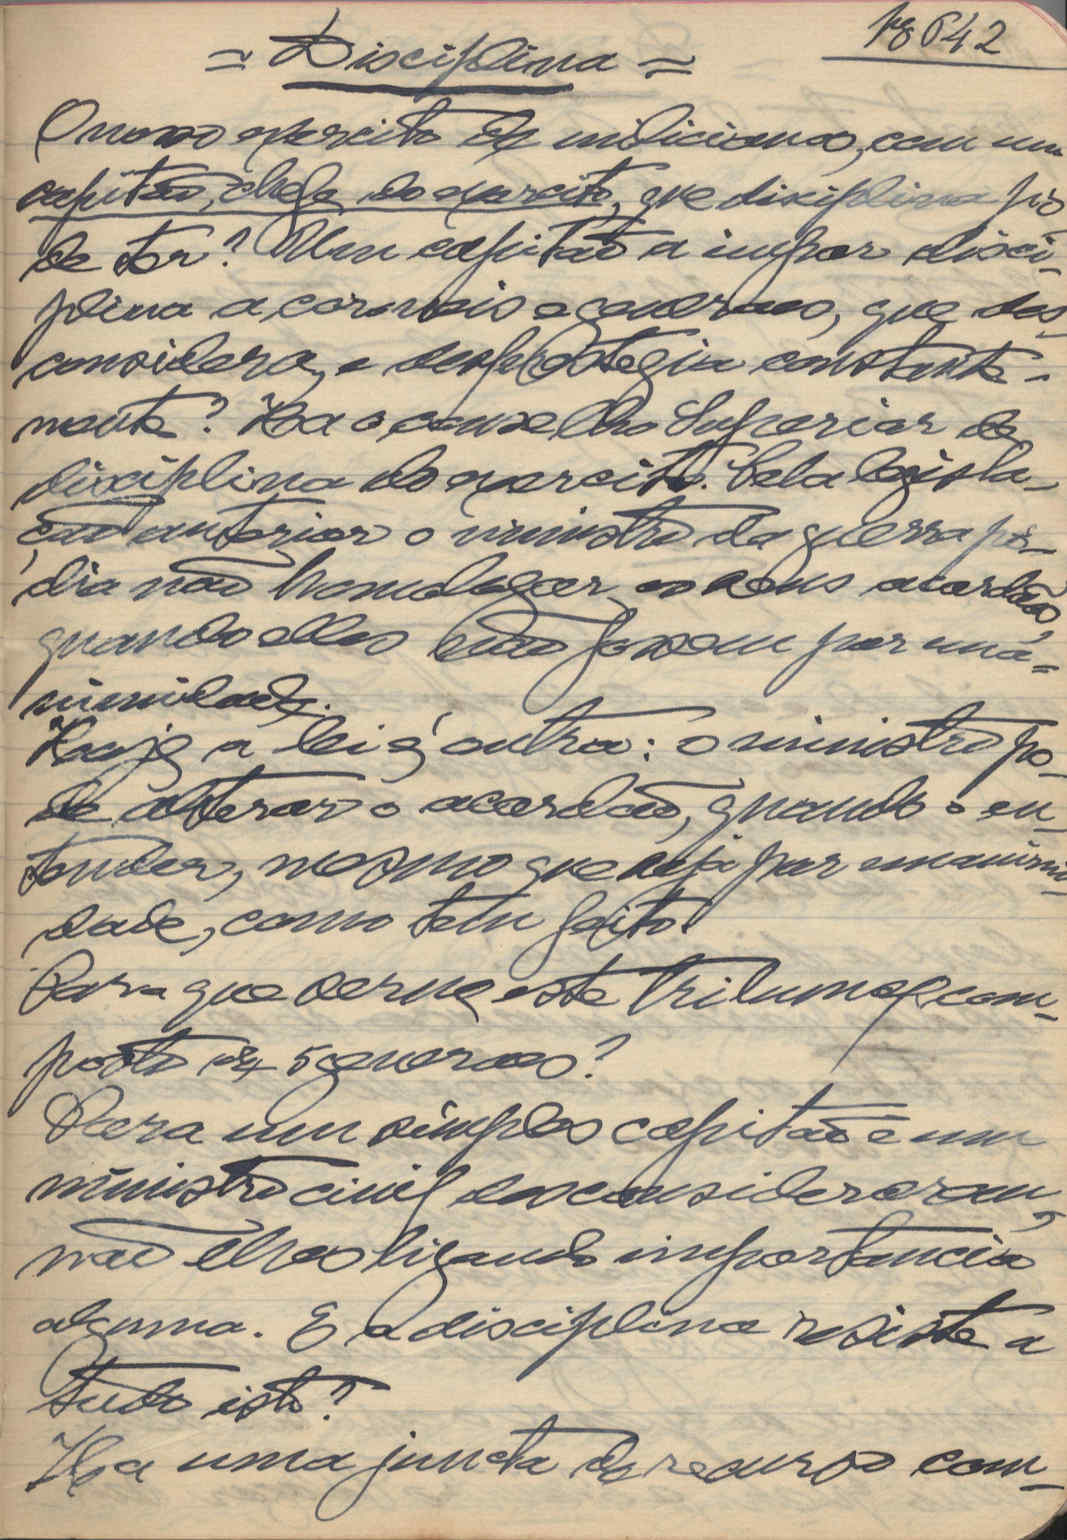 pg 642
= Disciplina =
O nosso exercito de milicianos, com um
capitão, chefe do exercito, que disciplina pó
de ter? Um capitão a impor disci-
plina a coroneis e generaes, que des-
considera, e desprestegia constante-
mente? Ha o conselho Superior de
disciplina do exercito. Pela legisla-
ção anterior o ministro da guerra po-
dia não homologar os seus acordãos
quando elles não fossem por uná-
nimidade.
Hoje a lei é outra: o ministro po-
de alterar o acordão, quando o en-
tender, mesmo que seja por unanimi-
dade, como tem feito.
Para que serve este tribunal com-
posto de 5 generaes?
Para um simples capitão e um
ministro civil desconsiderarem,
não lhes ligando importancia
alguma. E a disciplina resiste a
tudo isto?
Ha uma juncta de recurso com-